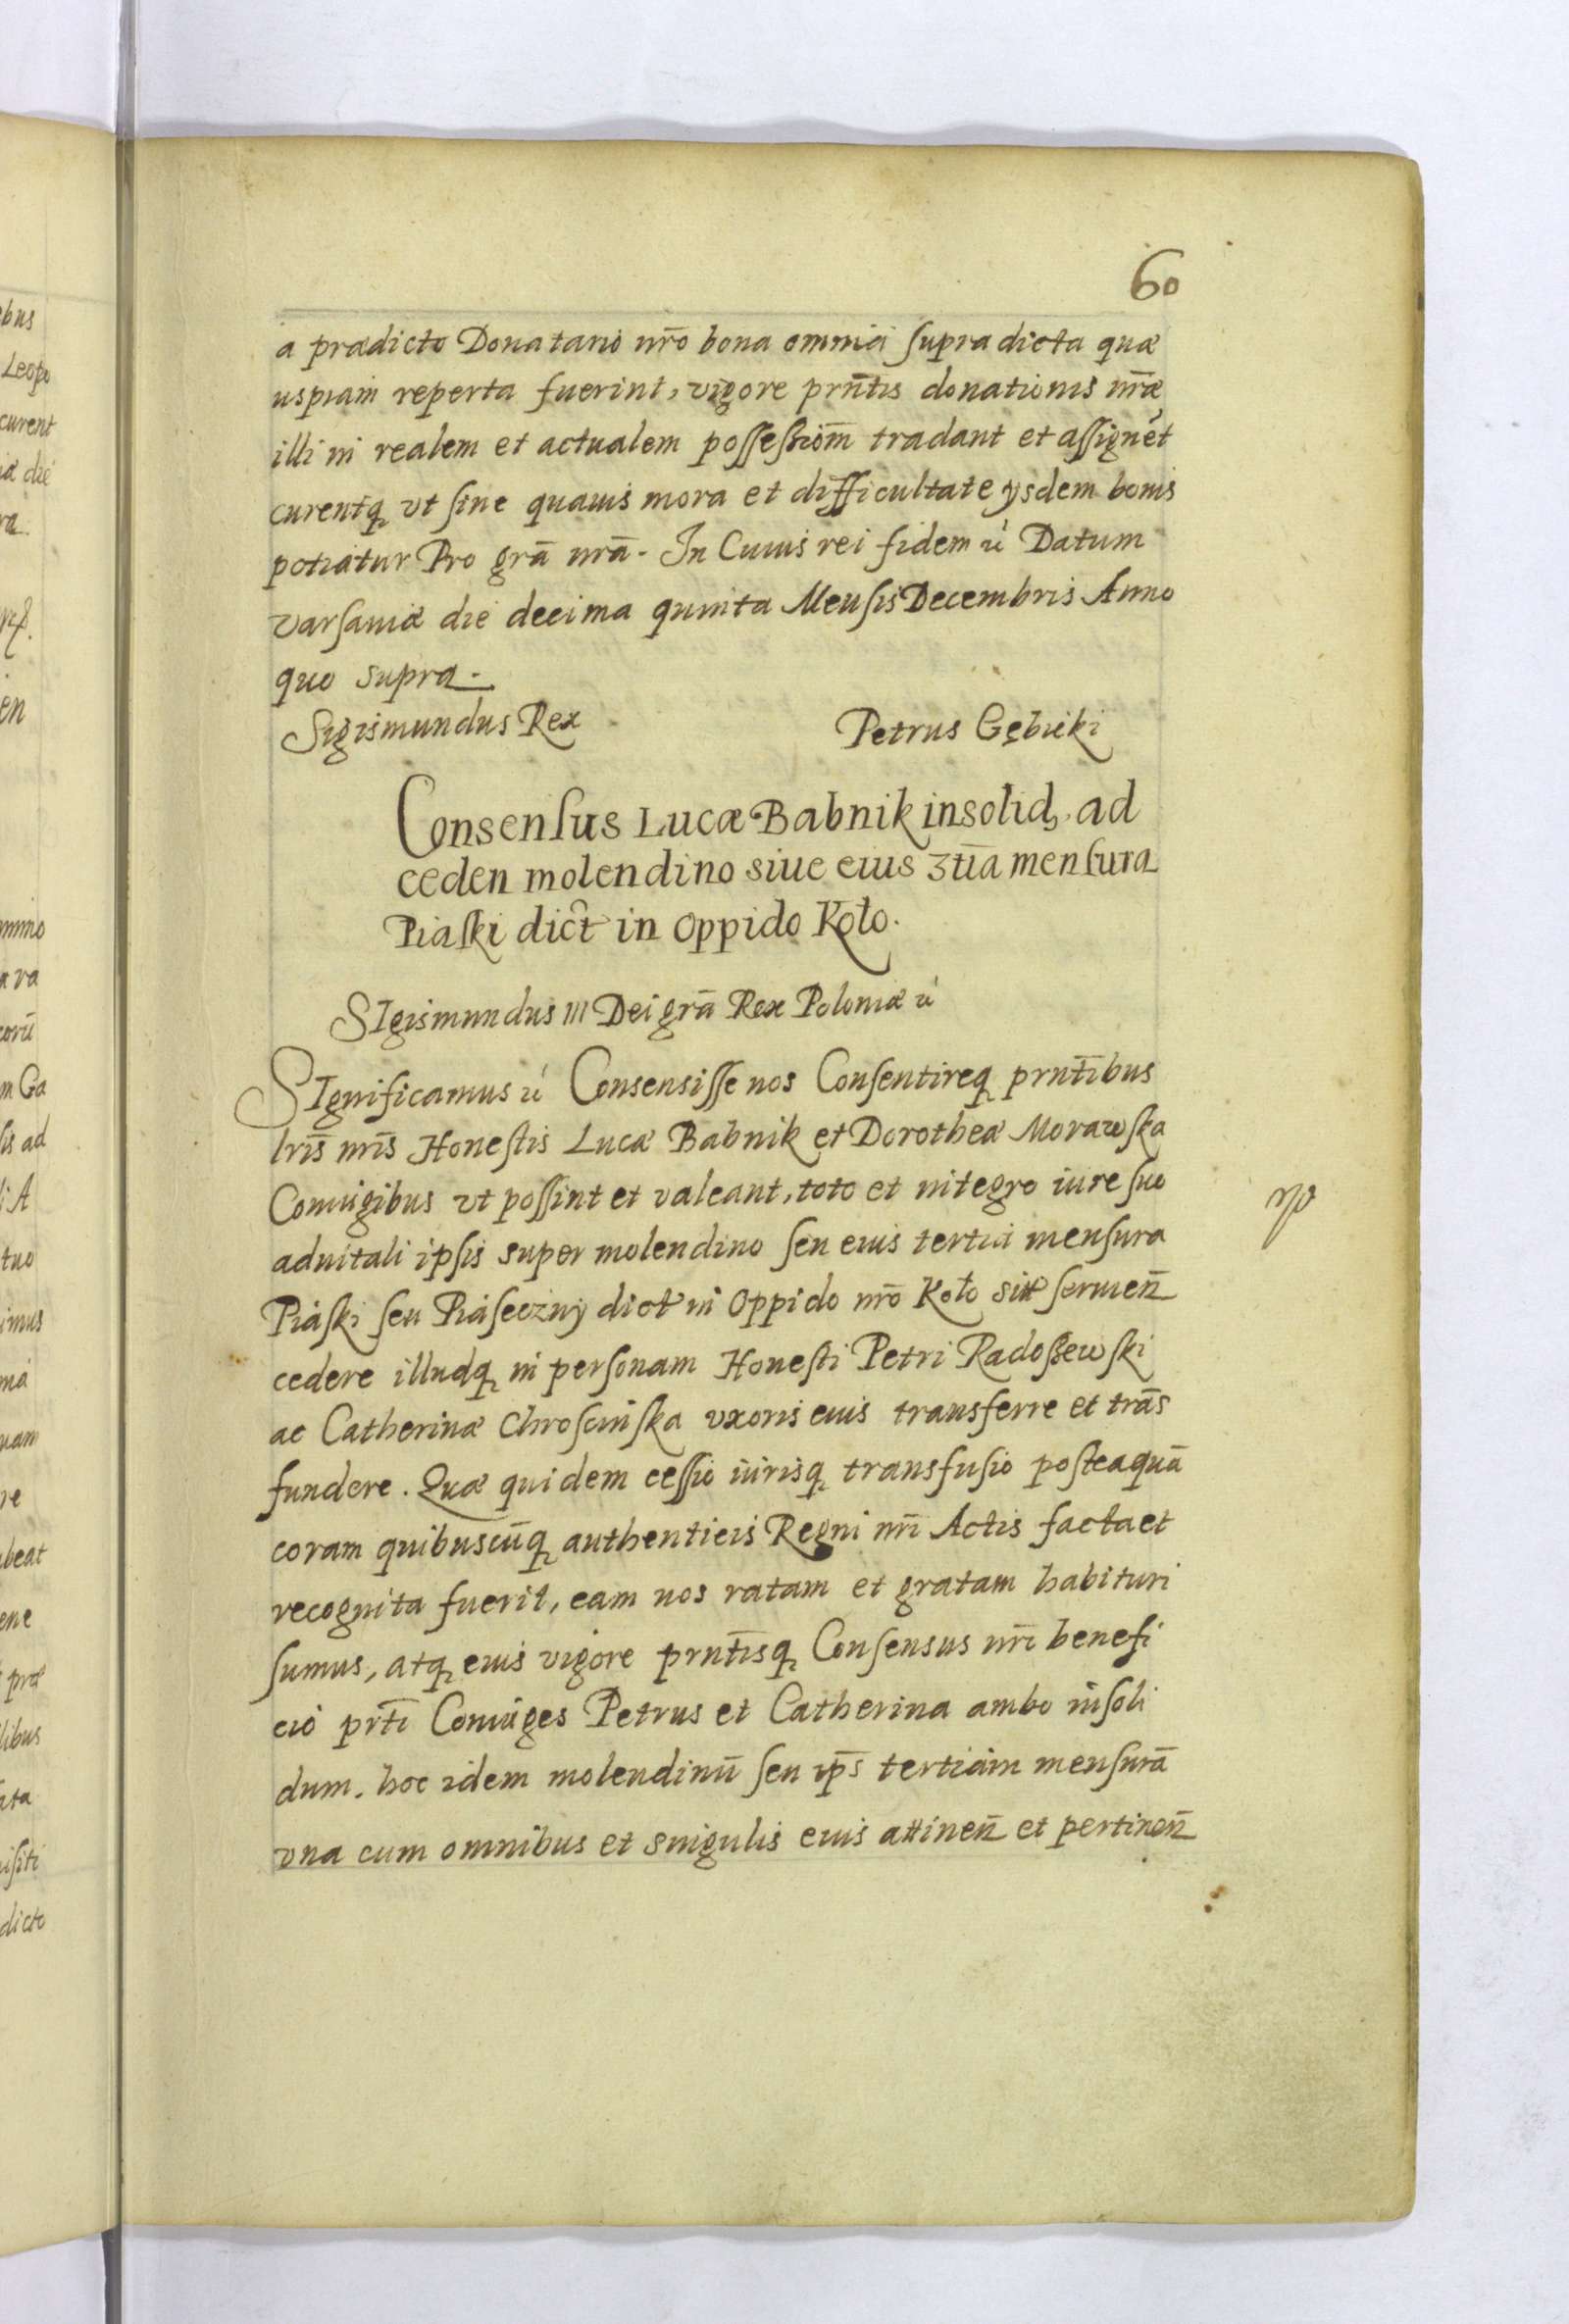 60
a prædicto Donatario nr̃o bona omnia supradicta quæ
uspiam reperta fuerint, vigore prñtis donationis nr̃æ
illi in realem et actualem possessiom̃ tradant et assignẽt
curentq, vt sine quavis mora et difficultate ysdem bonis
potiatur Pro grã nrã. In Cuius rei fidem ć Datum
Varsaviæ die decima quinta Mensis Decembris Anno
quo supra.
Sigismundus Rex Petrus Gębicki
Consensus Lucæ Babnik insolid, ad
ceden molendino siue eius 3tiã mensura
Piaski dict in Oppido Koło.
SIgismundus III Dei grã Rex Poloniæ ć
SIgnificamus ć Consensisse nos Consentireq, prntĩbus
lrĩs nrĩs Honestis Lucæ Babnik et Dorotheæ Morawska
Coniugibus vt possint et valeant, toto et integro iure suo
aduitali ipsis super molendino seu eius tertia mensura
Piaski seu Piaseczny dict in Oppido nrõ Koło sitt seruien̄
cedere illudq, in personam Honesti Petri Radoszewski
ac Catherinæ Chroscinska vxoris eius transferre et trãs
fundere. Quæ quidem cessio iurisq, transfusio posteaquã
coram quibuscũq, authenticis Regni nrĩ Actis facta et
recognita fuerit, eam nos ratam et gratam habituri
sumus, atq, eius vigore prntĩsq, Consensus nrĩ benefi
cio prtĩ Coniuges Petrus et Catherina ambo insoli
dum. hoc idem molendinũ seu ip̃s tertiam mensurã
vna cum omnibus et singulis eius attinen̄ et pertinen̄